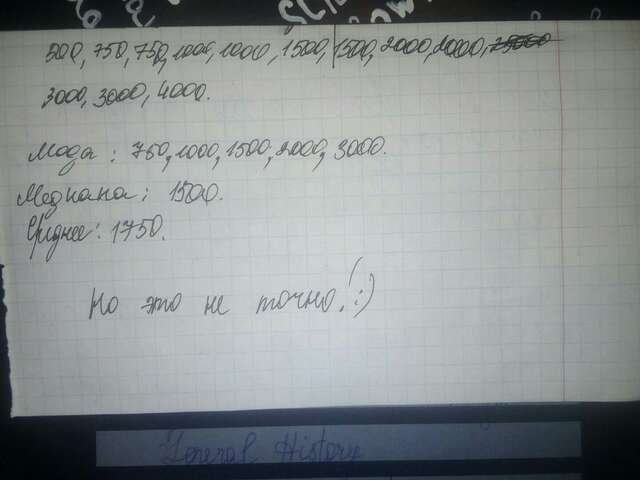 500, 750, 750, 1000, 1000, 1500, 1500, 2000, 2000,
3000, 3000, 4000.
Мода: 750, 1000, 1500, 2000, 3000.
Медиана: 1500.
Среднее: 1750.
Но это не точно! :)
General History